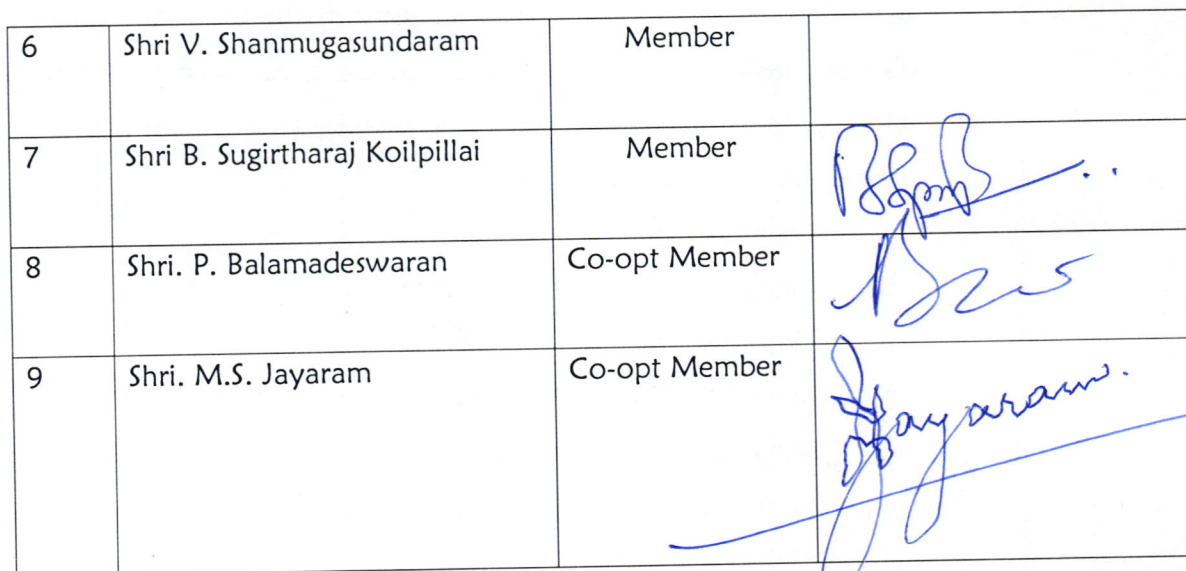 6 Shri V. Shanmugasundaram Member
7 Shri B. Sugirtharaj Koilpillai Member
8 Shri. P. Balamadeswaran Co-opt Member
9 Shri. M.S. Jayaram Co-opt Member Jayaram.